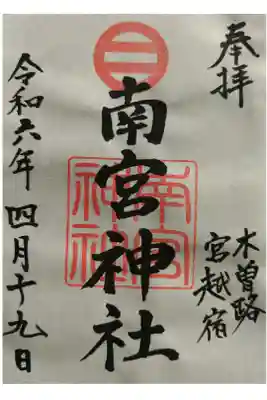 奉拝
木曽路
宮越宿
南宮神社
南宮
神社
令和六年 四月十九日